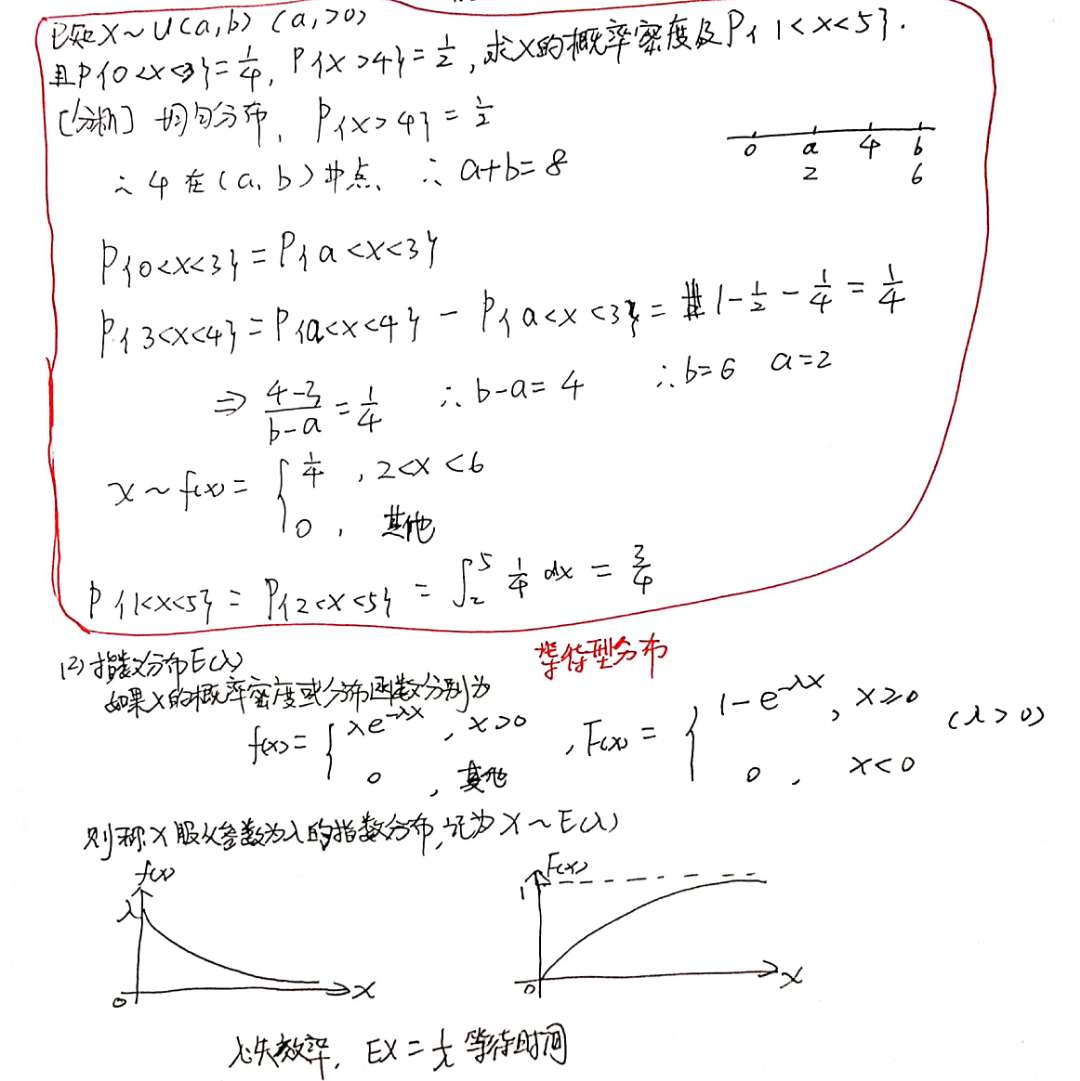 已知X~U(a,b) (a,>0)
且P{0<X<3}=1/4, P{X>4}=1/2, 求X的概率密度及P{1<X<5}.
[分析] 均匀分布, P{X>4}=1/2
∴4在(a,b)中点、∴a+b=8
0 a 4 b
2 6
P{0<X<3}=P{a<X<3}
P{3<X<4}=P{a<X<4}-P{a<X<3}=1-1/2-1/4=1/4
⇒ (4-3)/(b-a)=1/4 ∴b-a=4 ∴b=6 a=2
X~f(x)={1/4, 2<x<6
0, 其他
P{1<X<5}=P{2<X<5}=∫₂⁵ 1/4 dx=3/4
(2)指数分布E(λ) 等待型分布
如果X的概率密度或分布函数分别为
f(x)={λe^{-λx}, x>0 , F(x)={1-e^{-λx}, x≥0 (λ>0)
0, 其他 0, x<0
则称X服从参数为λ的指数分布,记为X~E(λ)
f(x) F(x)
λ 1
0 x 0 x
λ失效率, EX=1/λ 等待时间